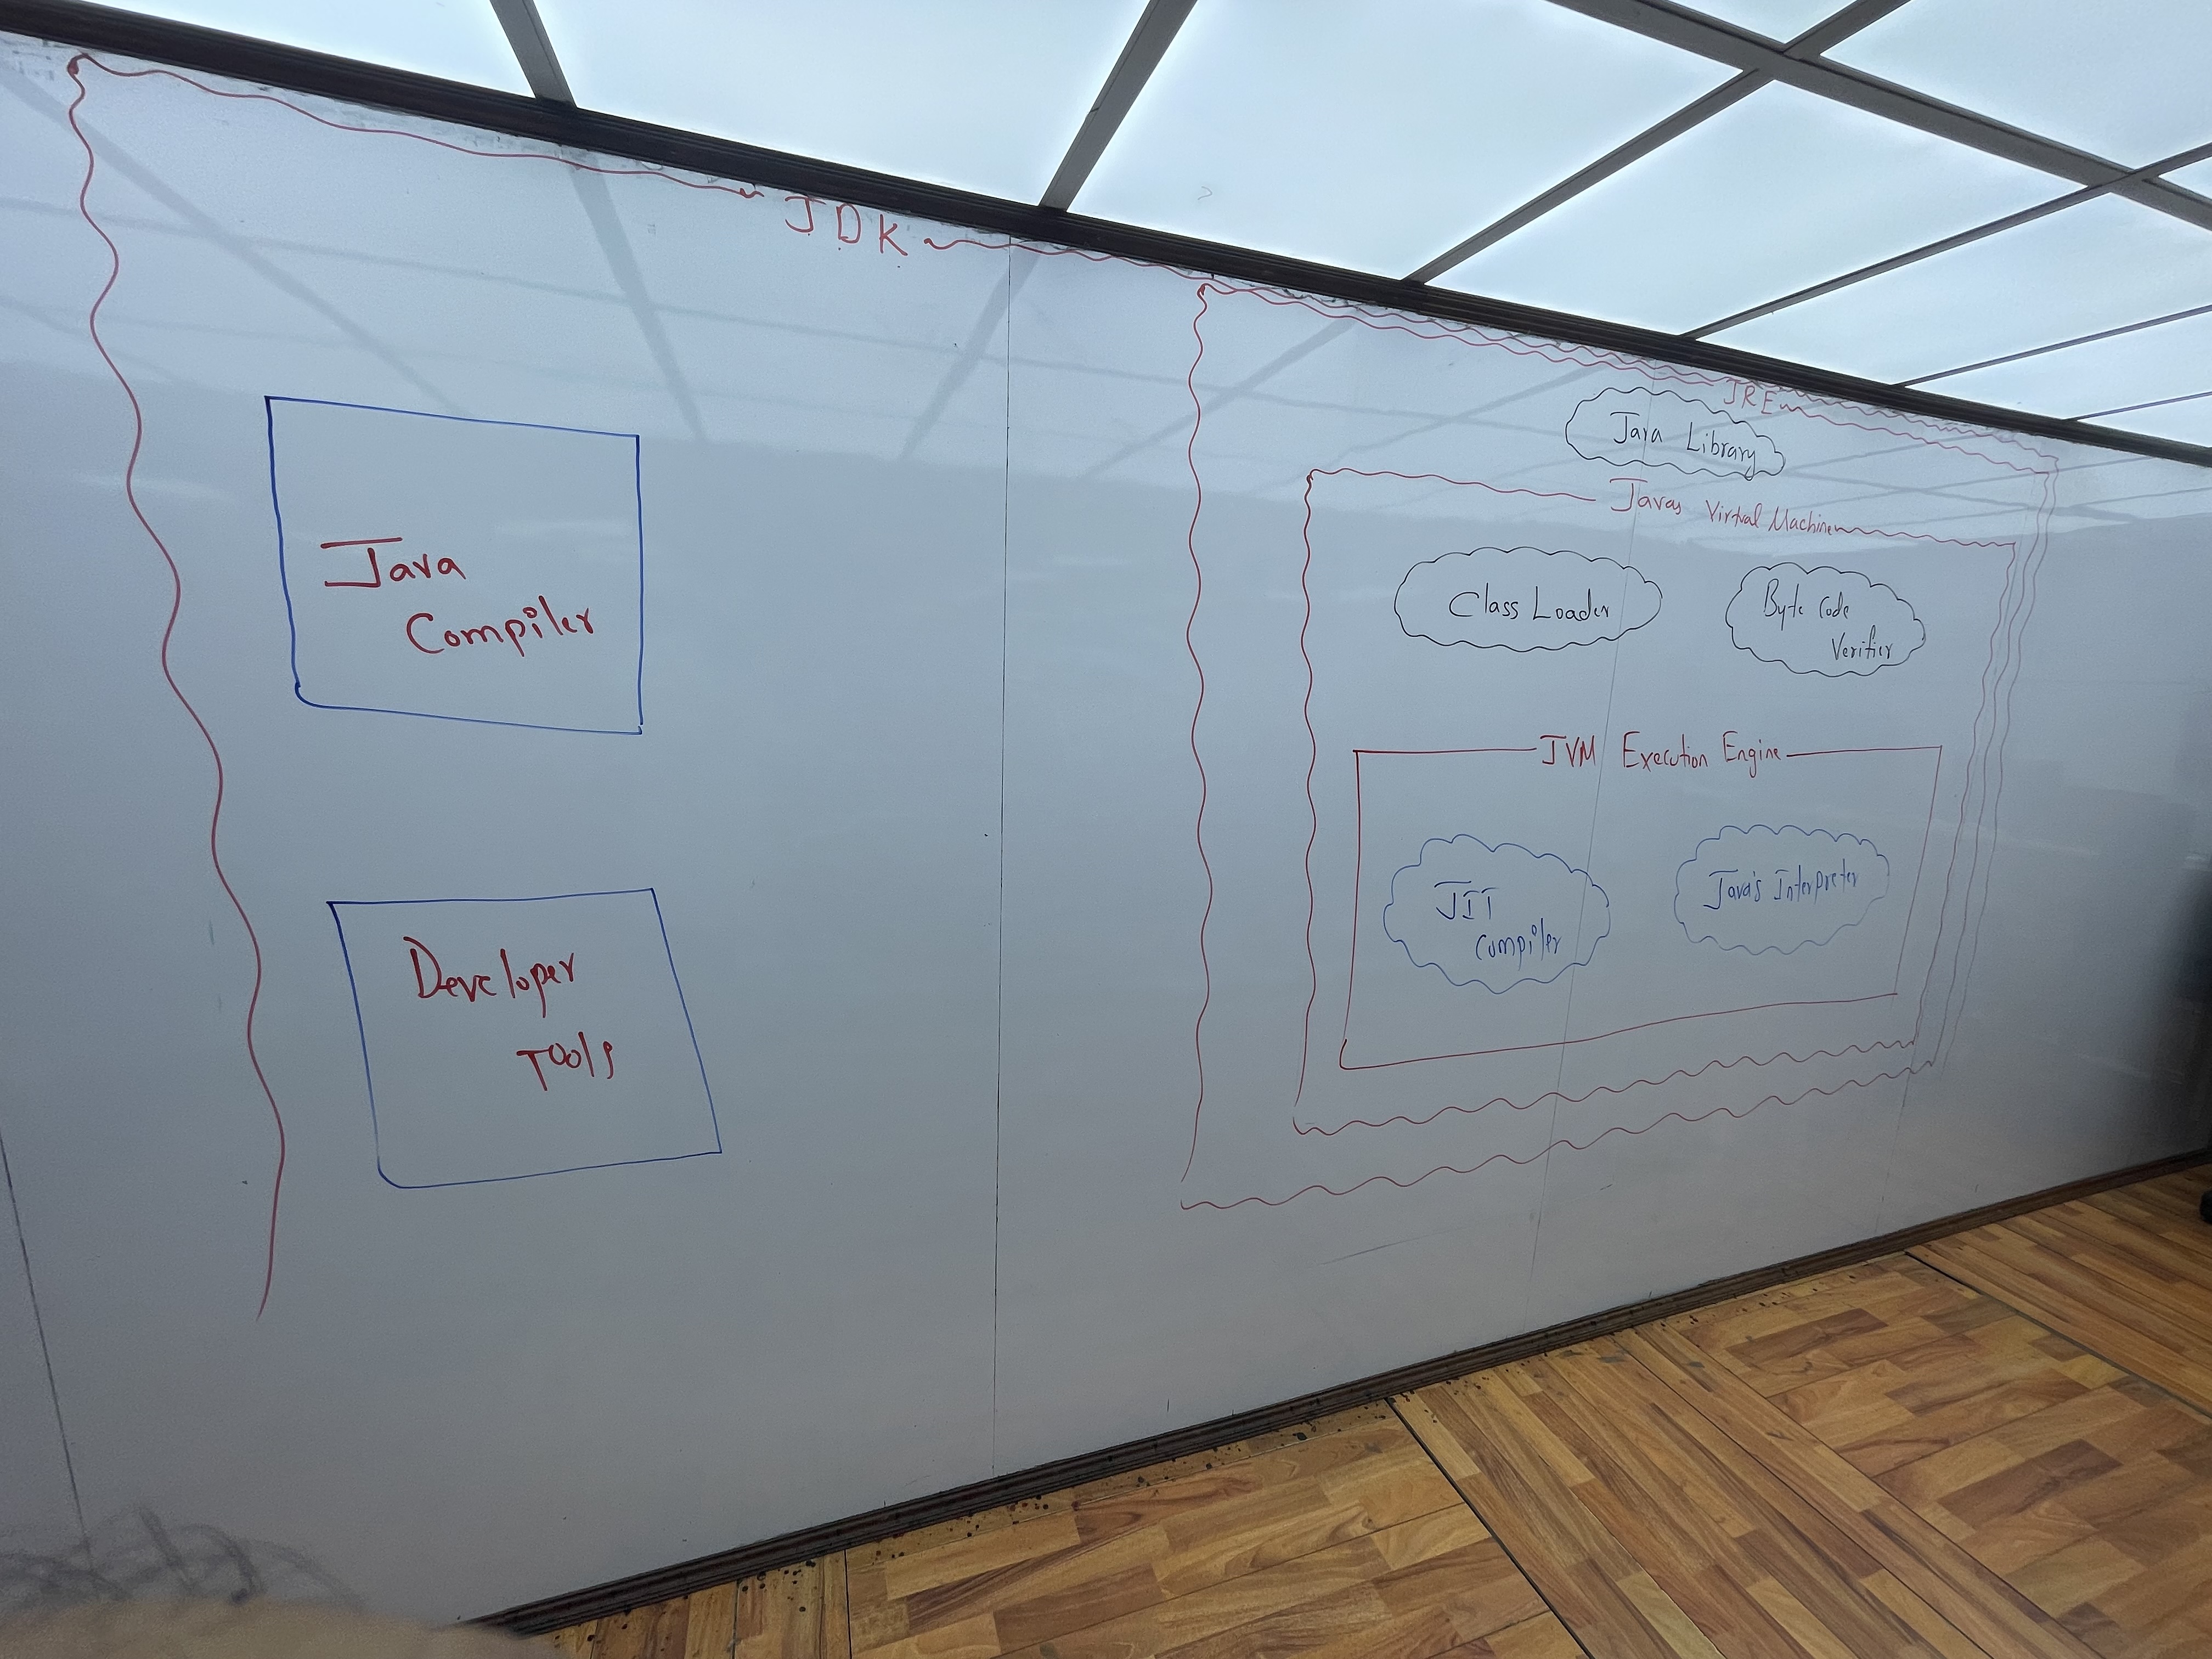 JDK
Java
Compiler
Developer
Tools
JRE
Java Library
Javas Virtual Machine
Class Loader
Byte Code
Verifier
JVM Execution Engine
JIT
Compiler
Java's Interpreter